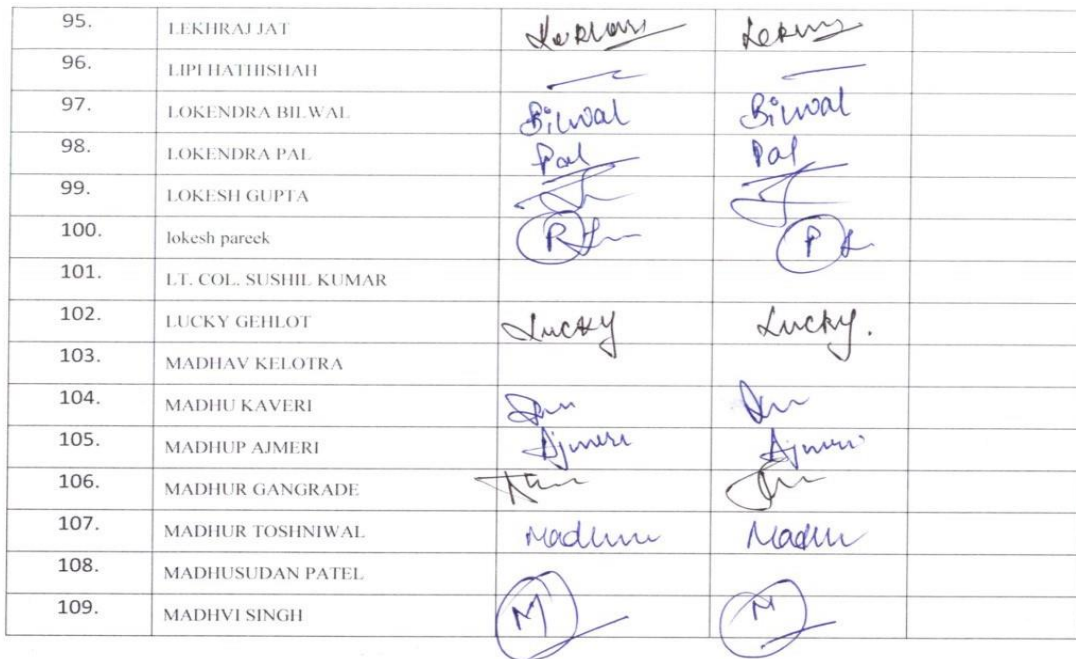 95. LEKHRAJ JAT
96. LIPI HATHISHAH
97. LOKENDRA BILWAL Bilwal Bilwal
98. LOKENDRA PAL Pal Pal
99. LOKESH GUPTA
100. lokesh pareek R P
101. LT. COL. SUSHIL KUMAR
102. LUCKY GEHLOT Lucky Lucky.
103. MADHAV KELOTRA
104. MADHU KAVERI
105. MADHUP AJMERI Ajmeri Ajmeri
106. MADHUR GANGRADE
107. MADHUR TOSHNIWAL
108. MADHUSUDAN PATEL
109. MADHVI SINGH M M